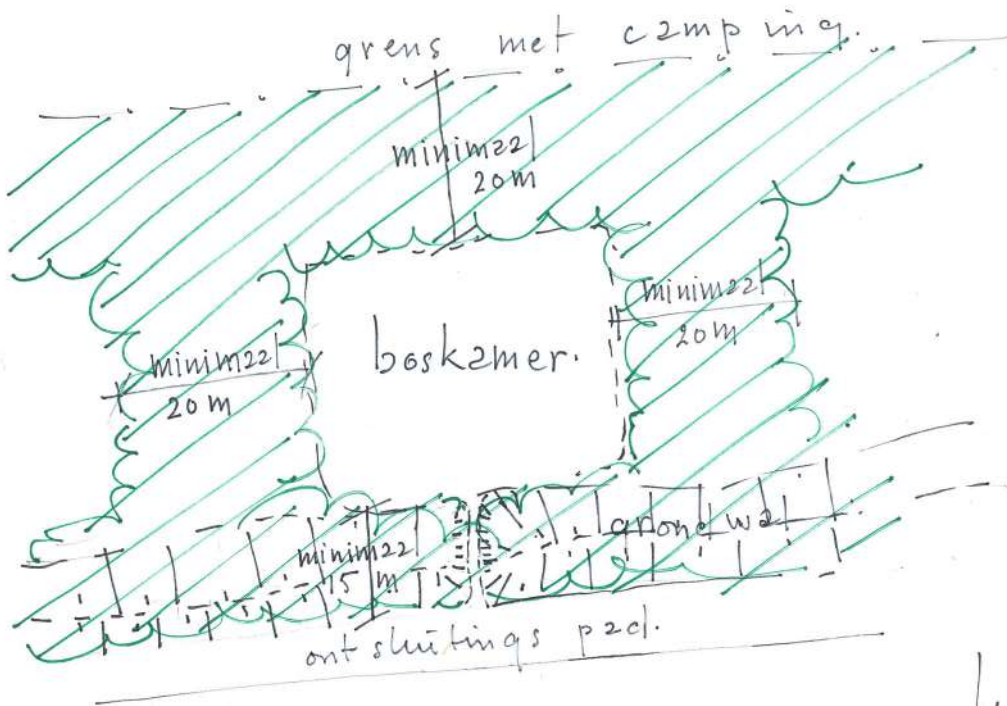 grens met camping.
minimaal
20 m
minimaal
20 m
boskamer.
minimaal
20 m
minimaal
15 m
grondwal
ontsluitings pad.